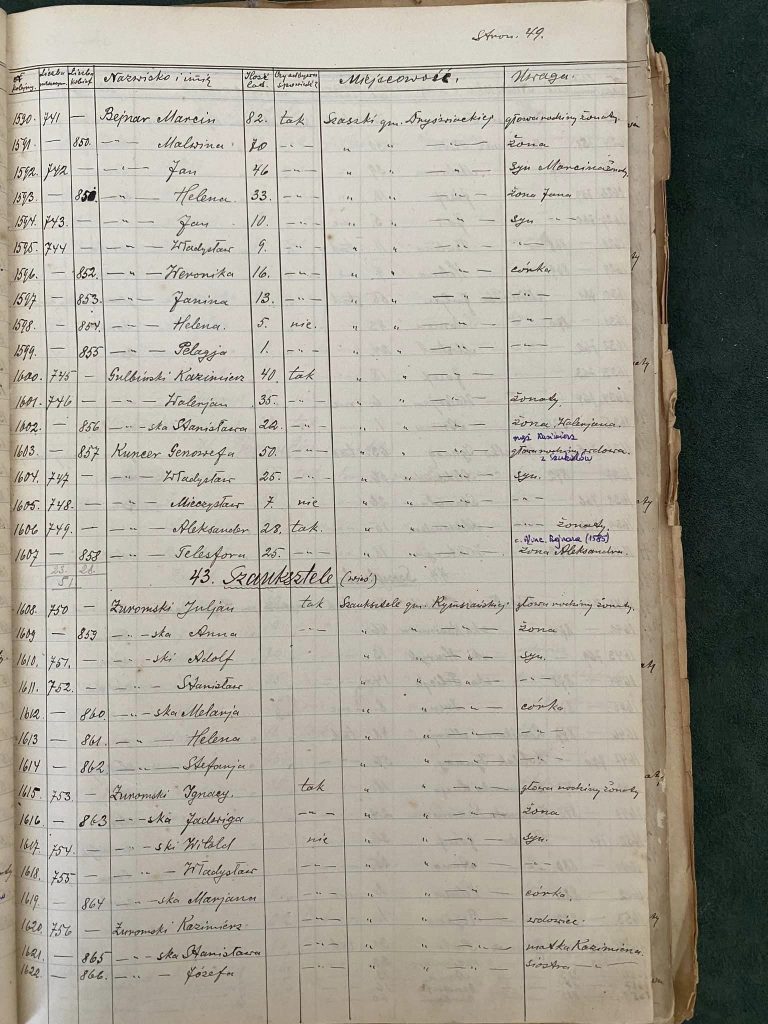 Stron. 49.
kolejny. Liczba Liczba kobiet. Nazwisko i imię Ilość lat. Czy odbywa spowiedź? Miejscowość. Uwaga.
1590. 741 — Bejnar Marcin 82. tak Szaszki gm. głowa rodziny żonaty
1591. — 850. — " — Malwina. 70 — " — " " — " — żona
1592. 742 — — " — Jan 46 — " — " " — " — syn Marcina żonaty
1593. — 851 — " — Helena. 33. — " — " " — " — żona Jana
1594. 743. — — " — Jan 10. — " — " " — " — syn — " —
1595. 744 — — " — Władysław 9. — " — " " — " — — " —
1596. — 852. — " — Weronika 16. — " — " " — " — córka
1597 — 853. — " — Janina 13. — " — " " — " — — " —
1598. — 854. — " — Helena. 5. nie. " " — " — — " —
1599. — 855 — " — Pelagja 1. — " — " " — " — — " —
1600. 745 — Gulbiński Kazimierz 40. tak " " — " —
1601. 746 — — " — Walerjan 35. — " — " " — " — żonaty.
1602. — 856 — " — ska Stanisława 22. — " — " " — " — żona Walerjana.
mąż Kazimierz
1603. — 857 Kuncer Genowefa 50. — " — " " — " — głowa rodziny wdowa.
z
1604. 747 — — " — Władysław 25. — " — " " — " — syn.
1605. 748. — — " — Mieczysław 7. nie " " — " — — " —
1606 749. — — " — Aleksander 28. tak. " " — " — — " — żonaty.
c. Winc. Bejnara (1585)
1607 — 858 — " — Telesfora 25. — " — " " — " — żona Aleksandra.
23. 28.
51
43. Szauksztele (wieś)
1608. 750 — Żuromski Juljan tak Szauksztele gm. Rymszańskiej głowa rodziny żonaty.
1609 — 859 — " — ska Anna — " — " " — " — żona
1610. 751. — — " — ski Adolf — " — " " — " — syn.
1611. 752. — — " — Stanisław — " — " " — " —
1612 — 860. — " — ska Melanja — " — " " — " — córka
1613 — 861. — " — Helena — " — " " — " — — " —
1614 — 862 — " — Stefanja — " — " " — " —
1615. 753. — Żuromski Ignacy tak " " — " — głowa rodziny żonaty
1616 — 863 — " — ska Jadwiga — " — " " — " — żona
1617. 754. — — " — ski Witold nie " " — " — syn.
1618. 755 — — " — Władysław — " — " " — " — — " —
1619. — 864 — " — ska Marjana — " — " " — " — córka.
1620. 756 — Żuromski Kazimierz — " — " " — " — wdowiec.
1621. — 865 — " — ska Stanisława — " — " " — " — matka Kazimierza
1622. — 866. — " — Józefa — " — " " — " — siostra — " —